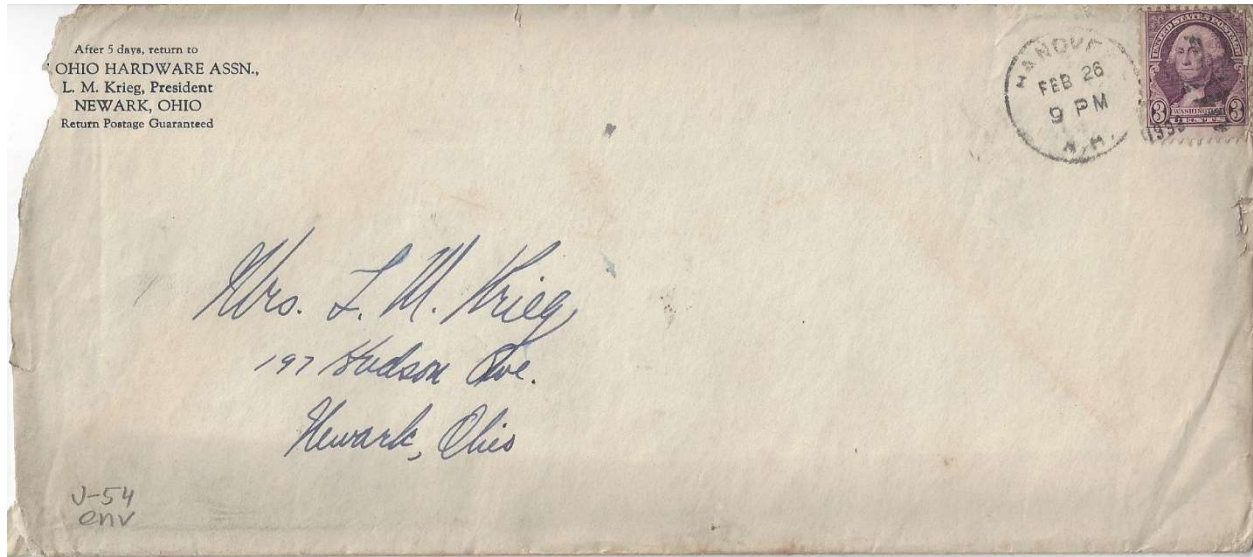 After 5 days, return to
OHIO HARDWARE ASSN.,
L. M. Krieg, President
NEWARK, OHIO
Return Postage Guaranteed
HANOVE
FEB 26
9 PM
N.H.
UNITED STATES POSTAGE
3 WASHINGTON 3
CENTS
Mrs. L. M. Krieg
197 Hudson Ave.
Newark, Ohio
J-54
env